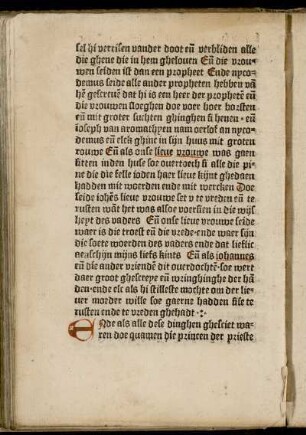 sel hi verrisen vander doot eñ verbliden alle
die ghene die in hem gheloven Eñ die vrou-
wen seiden ist dan een propheet Ende nyco-
demus seide alle ander propheten hebben vã
hē gescreuē dat hi is een heer der prophetē eñ
die vrouwen sloeghen doe voer hoer borsten
eñ mit groter suchten ghinghen si heuen· eñ
ioseph van aromathyen nam oerlof an nyco-
demus eñ elck ghinc in sijn huus mit groten
rouwe Eñ als onse lieue vrouwe was gaen
sitten inden huse soe ouertoech si alle die pi-
ne die die felle ioden haer lieue kijnt ghedaen
hadden mit woerden ende mit wercken Doe
seide iohēs lieue vrouwe set v te vreden eñ te
rusten wāt het was alsoe voersien in die wijs
heyt des vaders Eñ onse lieue vrouwe seide
waer is die troest eñ die vrede·ende waer sijn
die soete woerden des vaders ende dat lieflic
aenschijn mijns liefs kints Eñ als iohannes
eñ die ander vriendē dit ouerdochtē·soe wert
daer groot ghescreye eñ wringhinghe der hā
den·ende elc als hi stilleste mochte om der lie-
uer moeder wille soe gaerne hadden sise te
rusten ende te vreden ghehadt·:·
Ende als alle dese dinghen ghesciet wa-
ren doe quamen die princen der prieste